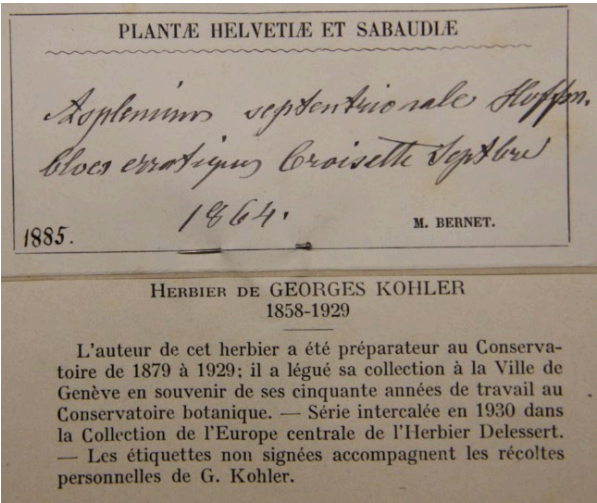 PLANTÆ HELVETIÆ ET SABAUDIÆ
Asplenium septentrionale Hoffm.
blocs erratiques Croisette Septbre
1864.
1885.
M. BERNET.
HERBIER DE GEORGES KOHLER
1858-1929
L'auteur de cet herbier a été préparateur au Conserva-
toire de 1879 à 1929; il a légué sa collection à la Ville de
Genève en souvenir de ses cinquante années de travail au
Conservatoire botanique. — Série intercalée en 1930 dans
la Collection de l'Europe centrale de l'Herbier Delessert.
— Les étiquettes non signées accompagnent les récoltes
personnelles de G. Kohler.